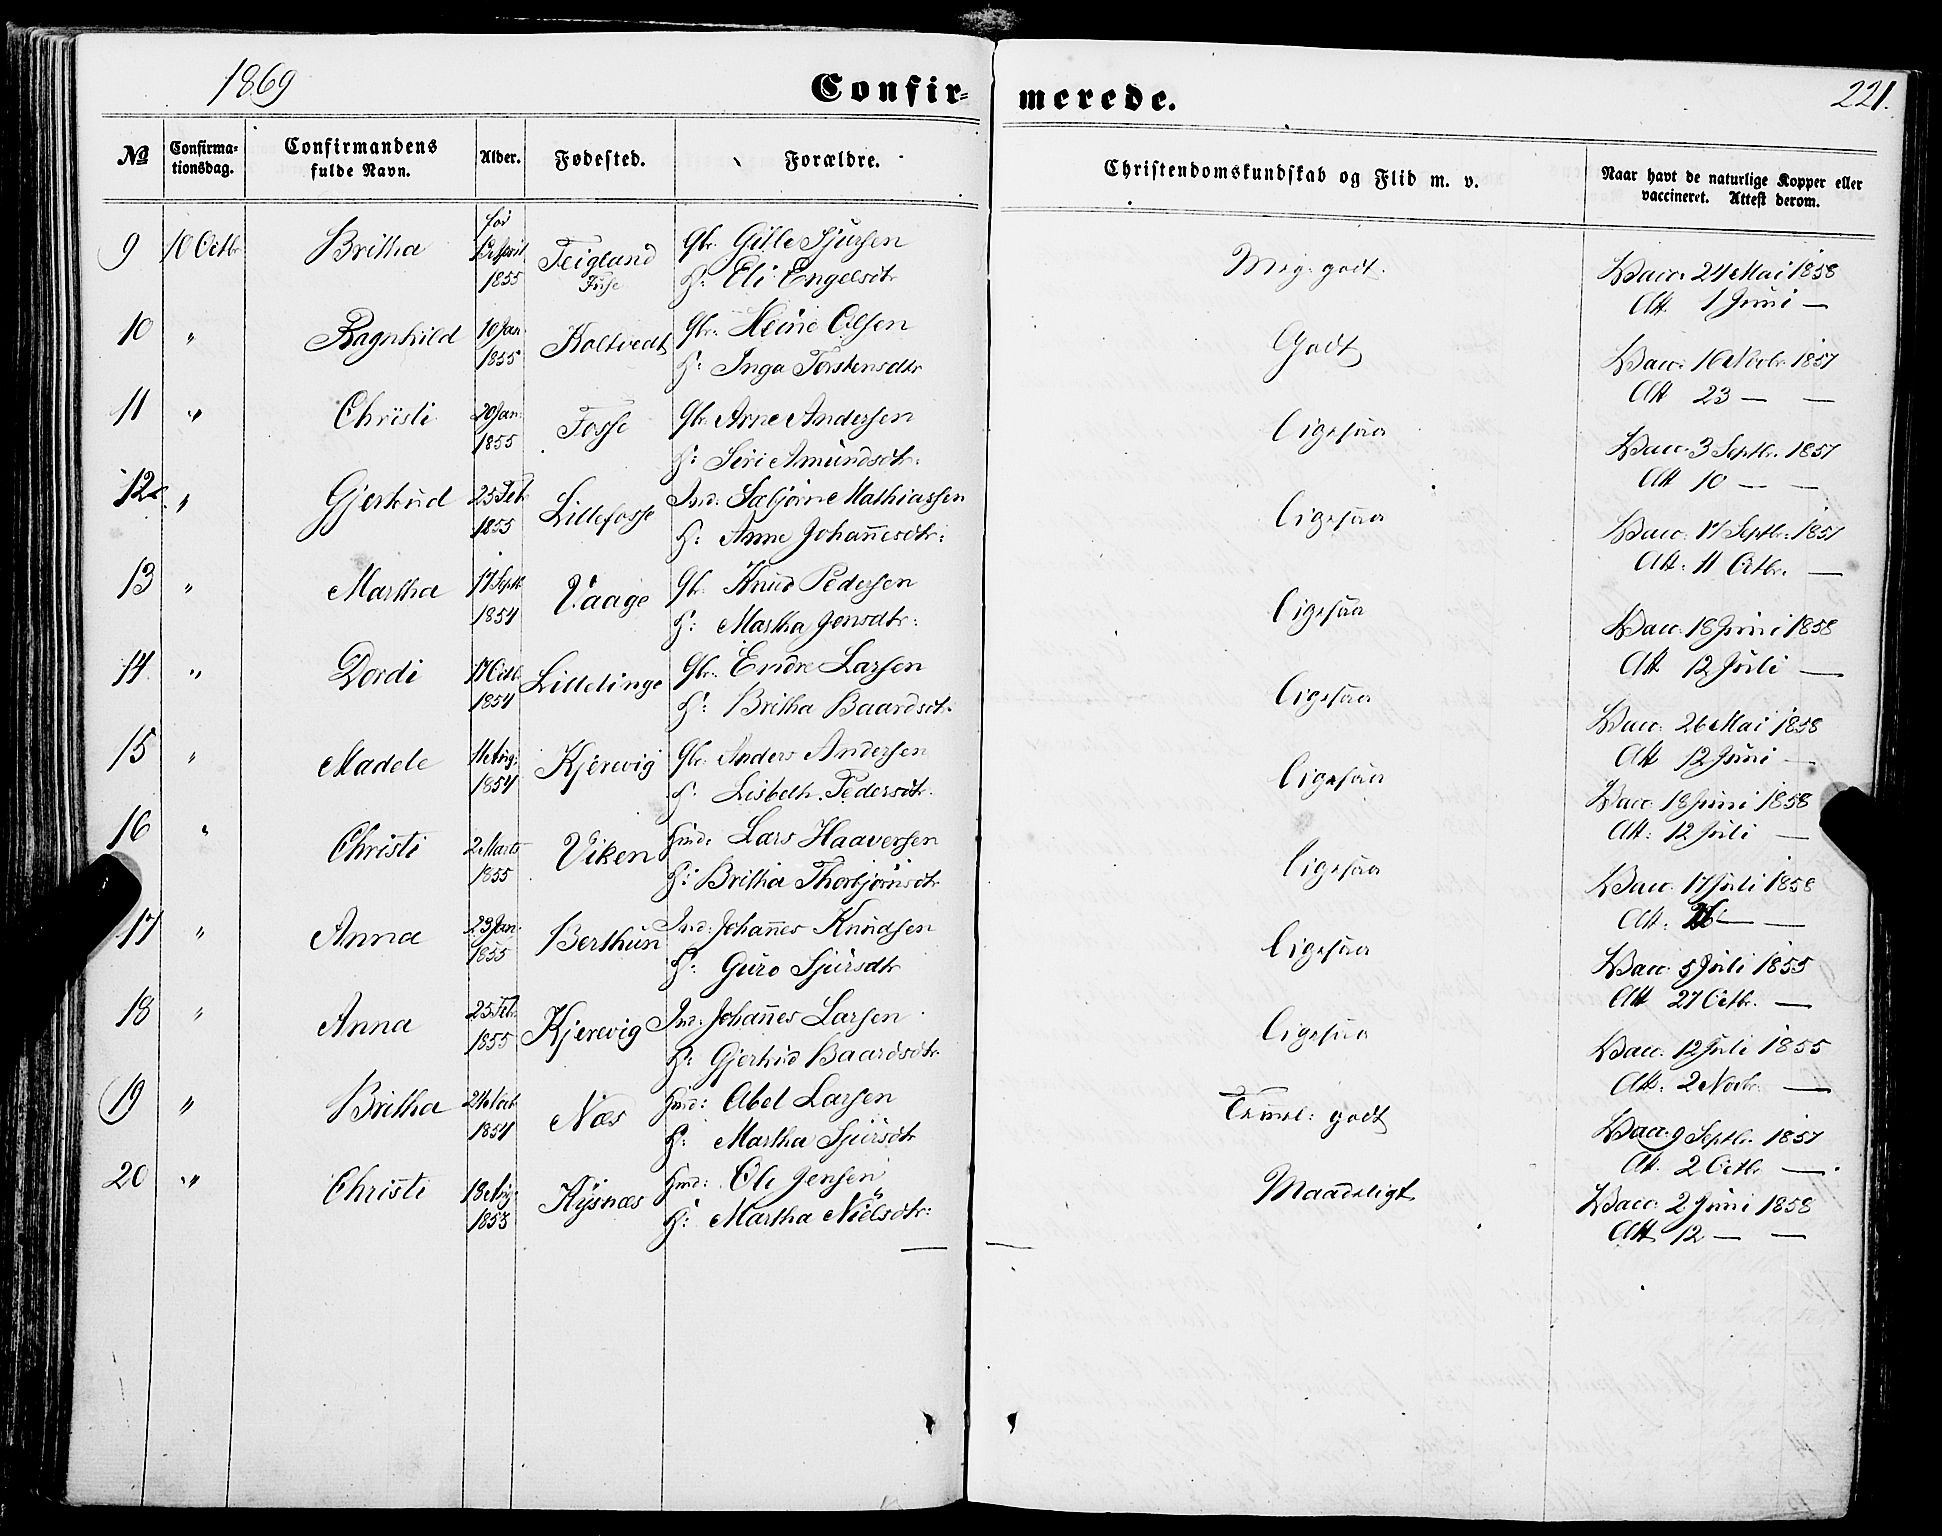 1869
Confir= merede.
221.
No
Confirma-
tionsdag.
Confirmandens
fulde Navn.
Alder.
Fødested.
Forældre.
Christendomskundskab og Flid m. v.
Naar havt de naturlige Kopper eller
vaccineret. Attest derom.
9 10 Octbr Britha 1855 Teigland Fuse Gbr. Gitle Sjursen
H: Eli Engelsdtr
Meg. godt. Vacc: 24 Mai 1858
Att 1 Juni —
10 " Ragnhild 10 Jan. 1855 Koltvedt Gbr. Heine Olsen
H: Inga Torstensdtr
Godt Vacc: 16 Novbr. 1857
Att 23 — —
11 " Christi 20 Jan. 1855 Fosse Gbr. Arne Andersen
H: Siri Amundsdtr:
Ligesaa Vacc. 3 Septbr. 1857
Att 10 — —
12 " Gjertrud 25 Feb. 1855 Lillefosse Ind: Sæbjørne Mathiassen
H: Anne Johannesdtr:
Ligesaa Vacc. 17 Septbr. 1857
Att: 11 Octbr. —
13 " Martha 17 Septb. 1854 Vaage Gbr. Knud Pedersen
H: Martha Jensdtr:
Ligesaa Vacc: 18 Juni 1858
Att 12 Juli —
14. " Dordi 17 Octb. 1854 Lillelinge Gbr. Endre Larsen
H: Britha Baardsdtr.
Ligesaa Vacc: 26 Mai 1858
Att 12 Juni —
15 " Madele 1854 Kjerevig Gbr. Anders Andersen
H: Lisbeth Pedersdtr.
Ligesaa Vacc: 18 Juni 1858
Att: 12 Juli —
16 " Christi 2 Marts 1855 Viken Hmd: Lars Haaversen
H: Britha Thorbjørnsdtr
Ligesaa Vacc. 17 Juli 1858
Att: 26 — —
17 " Anna 23 Jan. 1855 Berthun Ind: Johannes Knudsen
H: Guro Sjursdtr
Ligesaa Vacc: 5 Juli 1855
Att 27 Octbr. —
18 " Anna 25 Feb. 1855 Kjerevig Ind: Johannes Larsen
H: Gjertrud Baardsdtr.
Ligesaa Vacc: 12 Juli 1855
Att: 2 Novbr. —
19 " Britha 1854 Næs Hmd: Abel Larsen
H: Martha Sjursdtr
Temel: godt Vacc. 9 Septbr. 1857
Att. 2 Octbr. —
20 " Christi 18 Aug. 1853 Kysnæs Hmd: Ole Jensen
H: Martha Nielsdtr:
Maadeligt Vacc: 2 Juni 1858
Att 12 — —